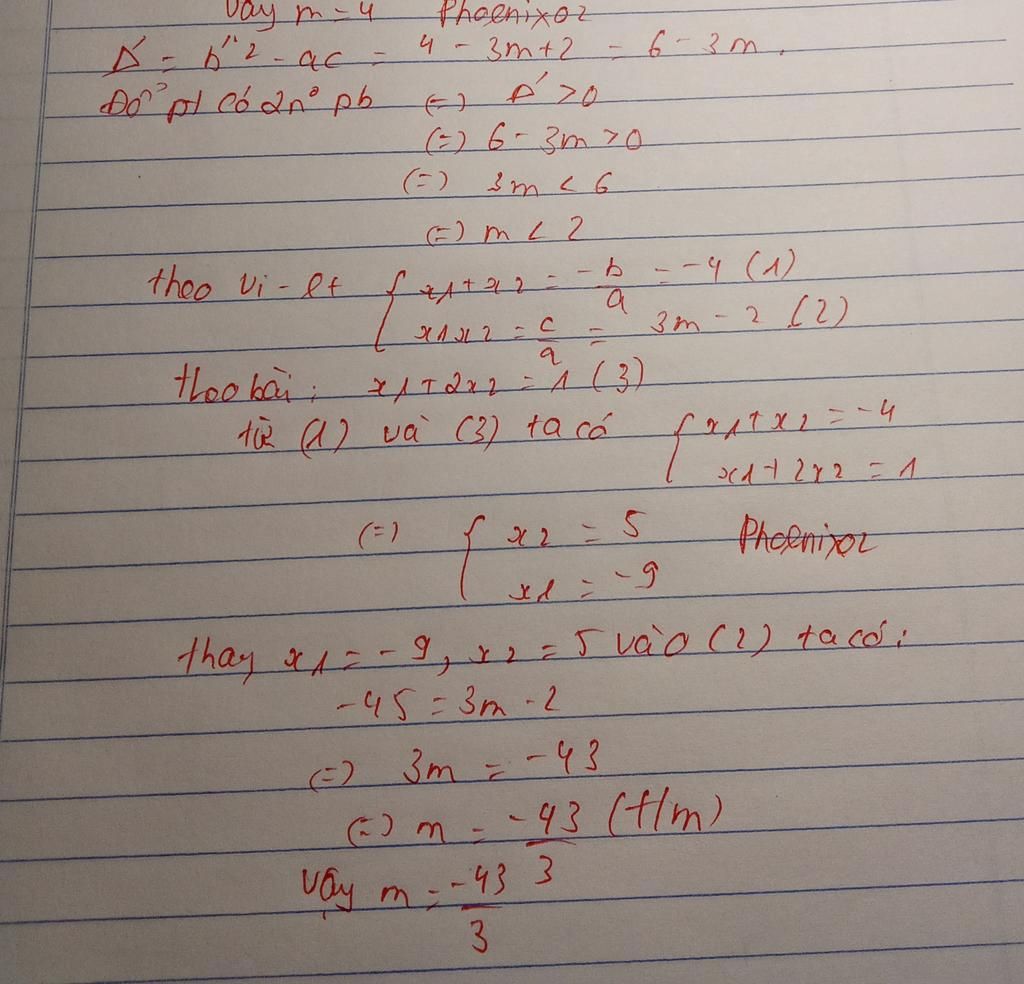 Vậy m = 4 Phoenixoz
Δ' = b'^2 - ac = 4 - 3m + 2 = 6 - 3m.
Để pt có 2n° pb (=) Δ' > 0
(=) 6 - 3m > 0
(=) 3m < 6
(=) m < 2
theo vi-ét { x1 + x2 = -b/a = -4 (1)
x1x2 = c/a = 3m - 2 (2)
theo bài: x1 + 2x2 = 1 (3)
từ (1) và (3) ta có { x1 + x2 = -4
x1 + 2x2 = 1
(=) { x2 = 5 Phoenixoz
x1 = -9
thay x1 = -9, x2 = 5 vào (2) ta có:
-45 = 3m - 2
(=) 3m = -43
(=) m = -43/3 (t/m)
Vậy m = -43/3